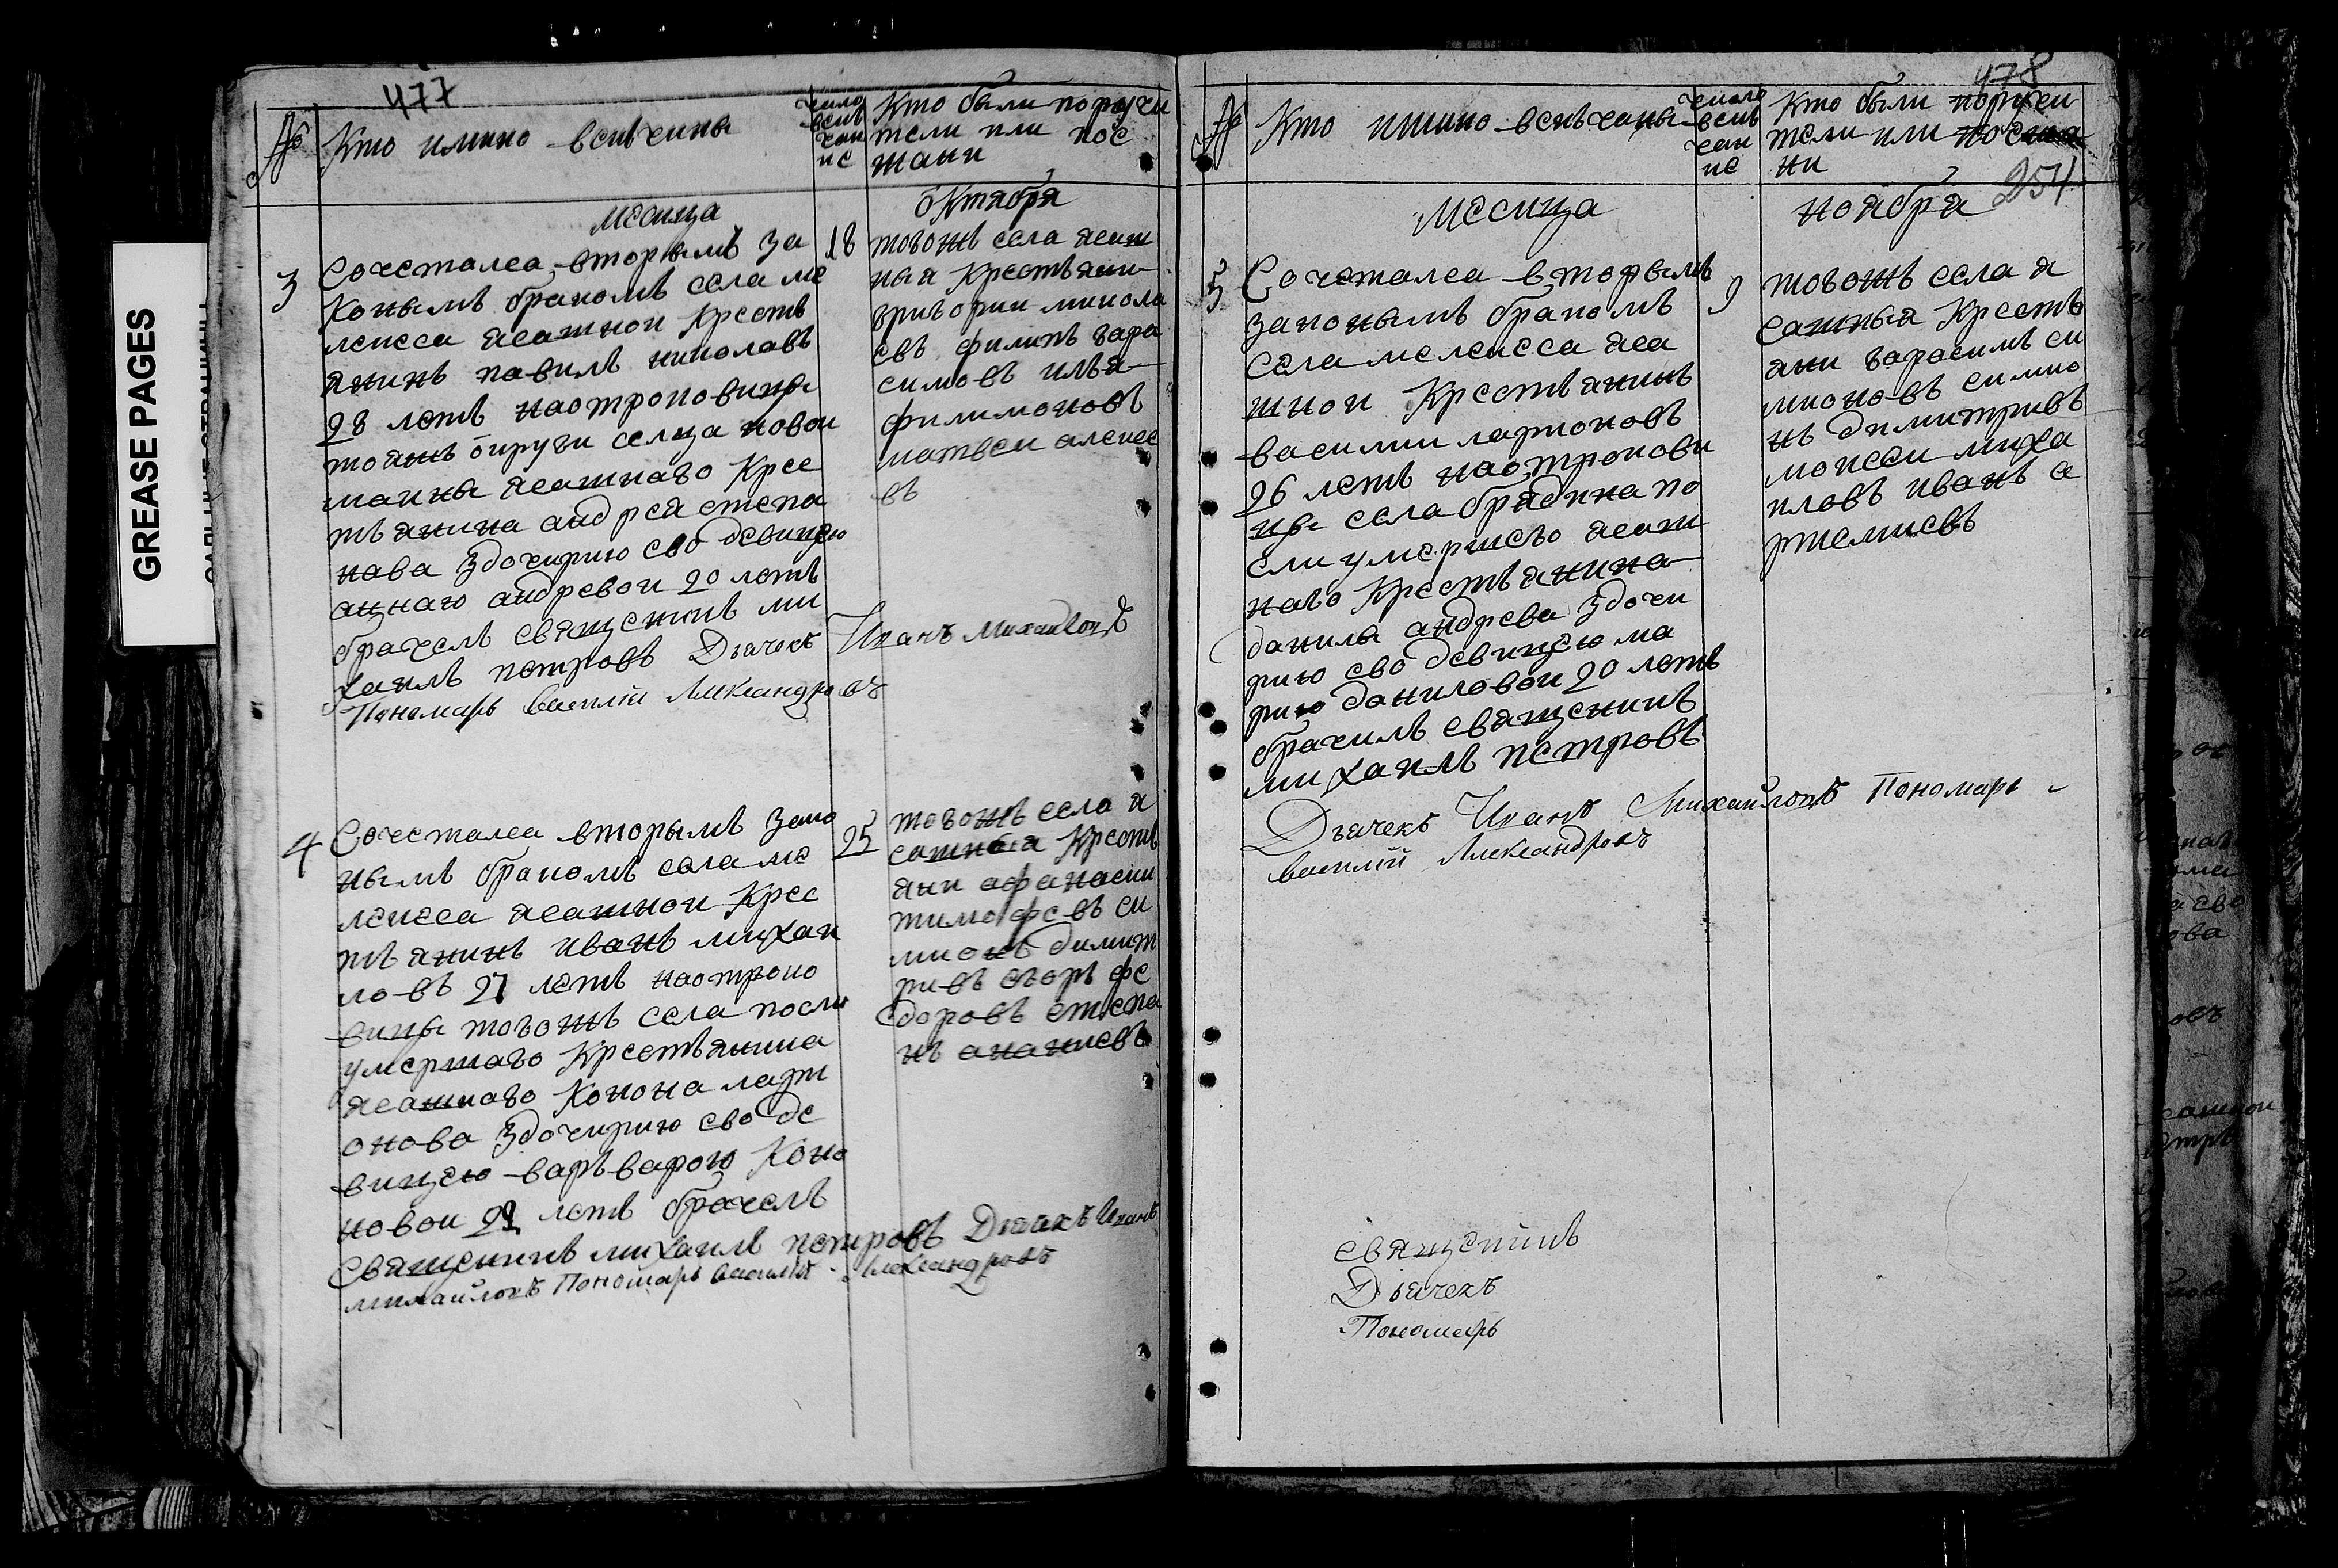 GREASE PAGES
477
№
Кто имино венчины
число
венъ
чан
ие
Кто были поручи
тели или пос
жани
месица
октября
3
Сочеталса вторымъ за
конымъ бракомъ села ме
лексса ясашнои Крестъ
янинъ павилъ николавъ
28 летъ наотроковицы
тоянъ округи селца новои
маины ясашнаго Крес
тъянина андрея степа
нава здочирию ево девицею
андревои 20 летъ
брачелъ священикъ ми
хаилъ петровъ Дьячекъ Иванъ Михайловъ
Пономарь василiй Александровъ
18
тогожъ села ясаш
ныя Крестьяни
григории микола
евъ филипъ гара
симовъ илъя
филимоновъ
матвеи алексе
въ
4
Сочеталса вторымъ зако
нымъ бракомъ села ме
лексса ясашнои Крес
тъянинъ иванъ михаи
ловъ 27 летъ наотроко
вицы тогожъ села после
умершаго Крестъянина
ясашнаго Конона лари
онова здочирию ево де
вицею варъварою Коно
новои 22 летъ брачелъ
священикъ михаилъ петровъ Дьячекъ Иванъ
михайловъ Пономарь василiй Александровъ
25
тогожъ села я
сашныя Крестъ
яни афанасии
тимофевъ си
мионъ димит
ривъ егоръ фе
доровъ степа
нъ ананиевъ
478
№
Кто имино венъчаны
число
венъ
чан
ие
Кто были поручи
тели или посжа
ни
254
месица
ноября
5
Сочеталса вторымъ
законымъ бракомъ
села мелексса яса
шнои Крестъянинъ
василии ларионовъ
26 летъ наотрокови
цы села брядина по
сли умершего ясаш
наго Крестъянина
данила андрева здочи
рию ево девицею ма
рию даниловои 20 летъ
брачилъ священикъ
михаилъ петровъ
Дьячекъ Иванъ Михайловъ Пономарь
василiй Александровъ
9
тогожъ села я
сашныя Крестъ
яни гарасимъ си
мионовъ симио
нъ димитривъ
моисеи миха
иловъ иванъ а
ртемиевъ
священикъ
Дьячекъ
Пономарь